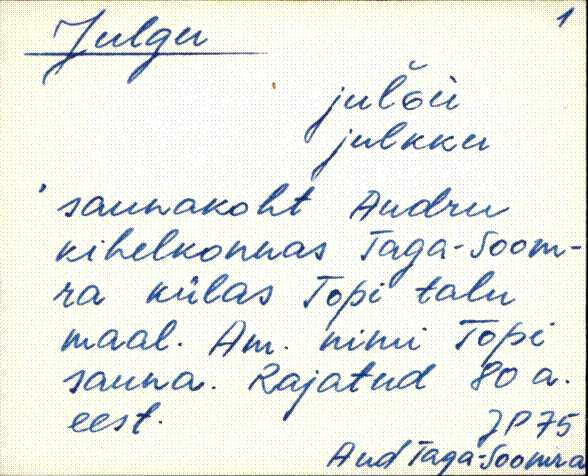 Julgu 1
julǒü
julkku
saunakoht Audru
kihelkonnas Taga-Soom-
ra külas Topi talu
maal. Am. nimi Topi
sauna. Rajatud 80 a.
eest.
JP 75
Aud Taga-Soomra